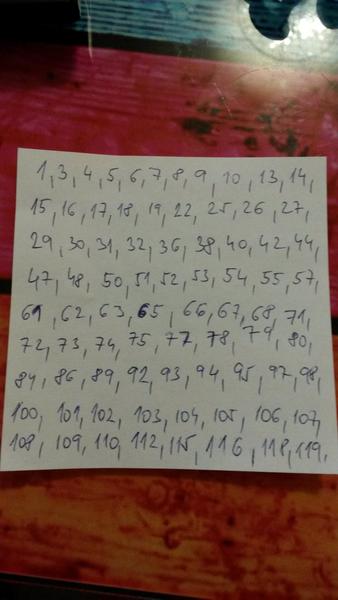 1, 3, 4, 5, 6, 7, 8, 9, 10, 13, 14,
15, 16, 17, 18, 19, 22, 25, 26, 27,
29, 30, 31, 32, 36, 38, 40, 42, 44,
47, 48, 50, 51, 52, 53, 54, 55, 57,
61, 62, 63, 65, 66, 67, 68, 71,
72, 73, 74, 75, 77, 78, 79, 80,
84, 86, 89, 92, 93, 94, 95, 97, 98,
100, 101, 102, 103, 104, 105, 106, 107,
108, 109, 110, 112, 115, 116, 118, 119,